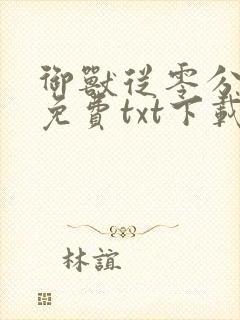 御獸從零分
免費txt下載
林誼